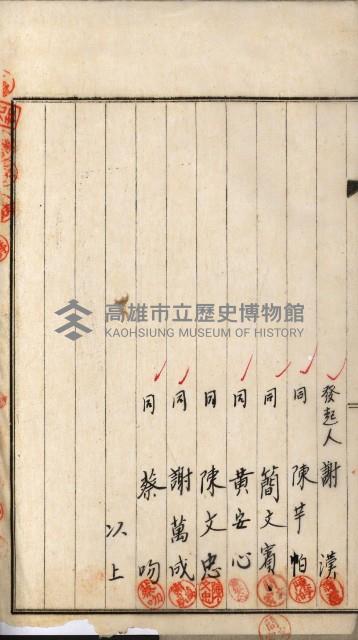 發起人 謝 漢
同 陳芋帕
同 簡文賓
同 黃安心
同 陳文忠
同 謝萬成
同 蔡吻
以上
高雄市立歷史博物館
KAOHSIUNG MUSEUM OF HISTORY